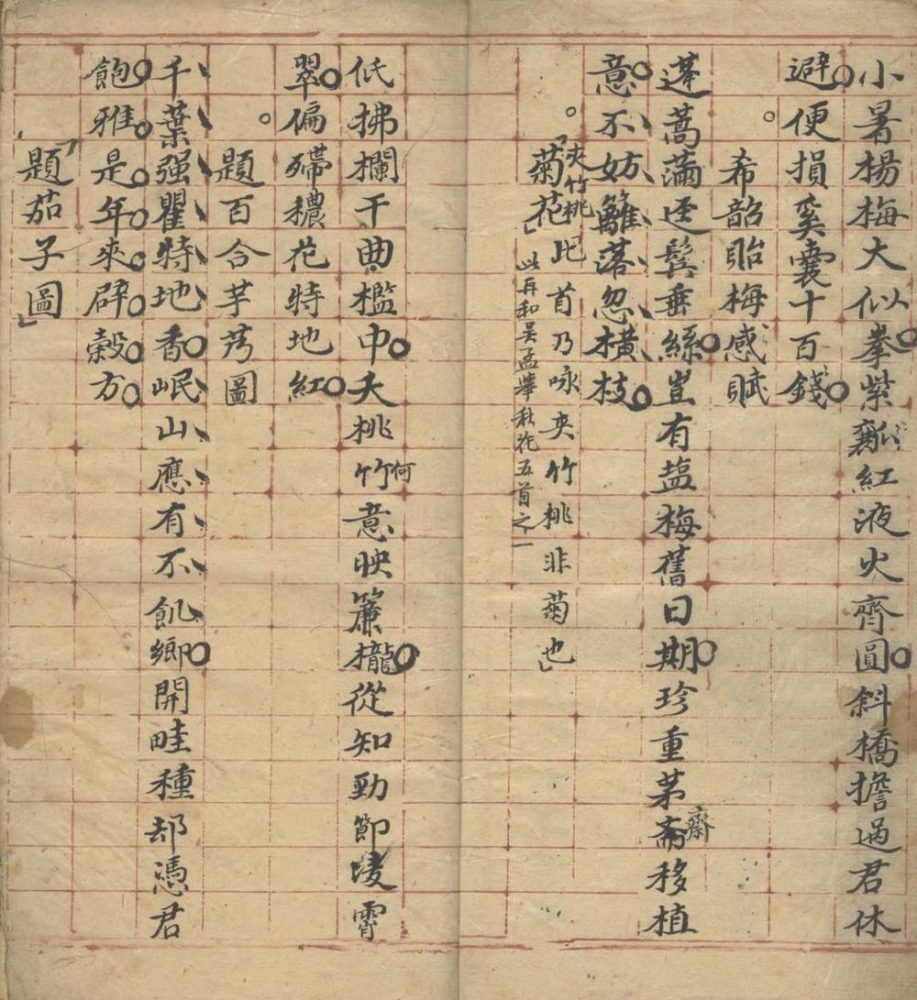 小暑楊梅大似拳紫瓤紅液火齊圓斜橋擔過君休
避便損奚囊十百錢
希韶貽梅感賦
蓬蒿滿逕鬂垂絲豈有塩梅舊日期珍重茅齋移植
意不妨籬落忽橫枝
「菊花」夾竹桃此首乃咏夾竹桃非菊也」
此再和吴孟舉秋花五首之一
低拂欄干曲檻中夭桃竹何意映簾櫳從知勁節凌霄
翠偏殢穠花特地紅
題百合芋艿圖
千葉强瞿特地香岷山應有不飢鄉開畦種却憑君
飽雅是年來辟穀方
「題茄子圖」